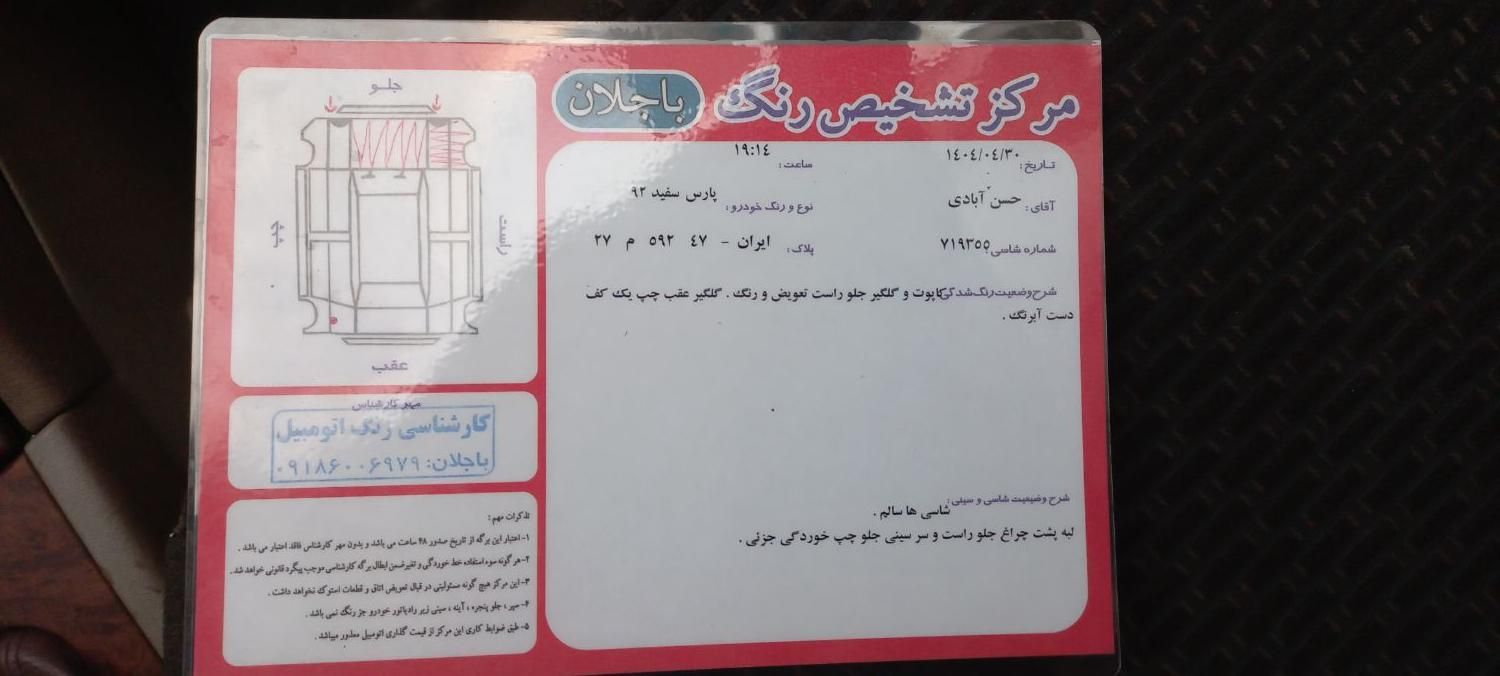 مرکز تشخیص رنگ باجلان
تاریخ: ۱٤۰٤/۰٤/۳۰
ساعت: ۱۹:۱٤
آقای: حسن آبادی
نوع و رنگ خودرو: پارس سفید ۹۲
شماره شاسی: ۷۱۹۳۵۵
پلاک: ایران - ٤۷ ۵۹۲ م ۲۷
شرح وضعیت رنگ شدگی: کاپوت و گلگیر جلو راست تعویض و رنگ . گلگیر عقب چپ یک کف
دست آبرنگ .
شرح وضعیت شاسی و سینی: شاسی ها سالم .
لبه پشت چراغ جلو راست و سر سینی جلو چپ خوردگی جزئی .
جلو
راست
چپ
عقب
مهر کارشناس
کارشناسی رنگ اتومبیل
باجلان: ۰۹۱۸۶۰۰۶۹۷۹
تذکرات مهم :
۱- اعتبار این برگه از تاریخ صدور ۴۸ ساعت می باشد و بدون مهر کارشناس فاقد اعتبار می باشد .
۲- هر گونه سوء استفاده خط خوردگی و تغیر ضمن ابطال برگه کارشناسی موجب پیگرد قانونی خواهد شد .
۳- این مرکز هیچ گونه مسئولیتی در قبال تعویض اتاق و قطعات استوک نخواهد داشت .
۴- سپر ، جلو پنجره ، آینه ، سینی زیر رادیاتور خودرو جز رنگ نمی باشد .
۵- طبق ضوابط کاری این مرکز از قیمت گذاری اتومبیل معذور میباشد .